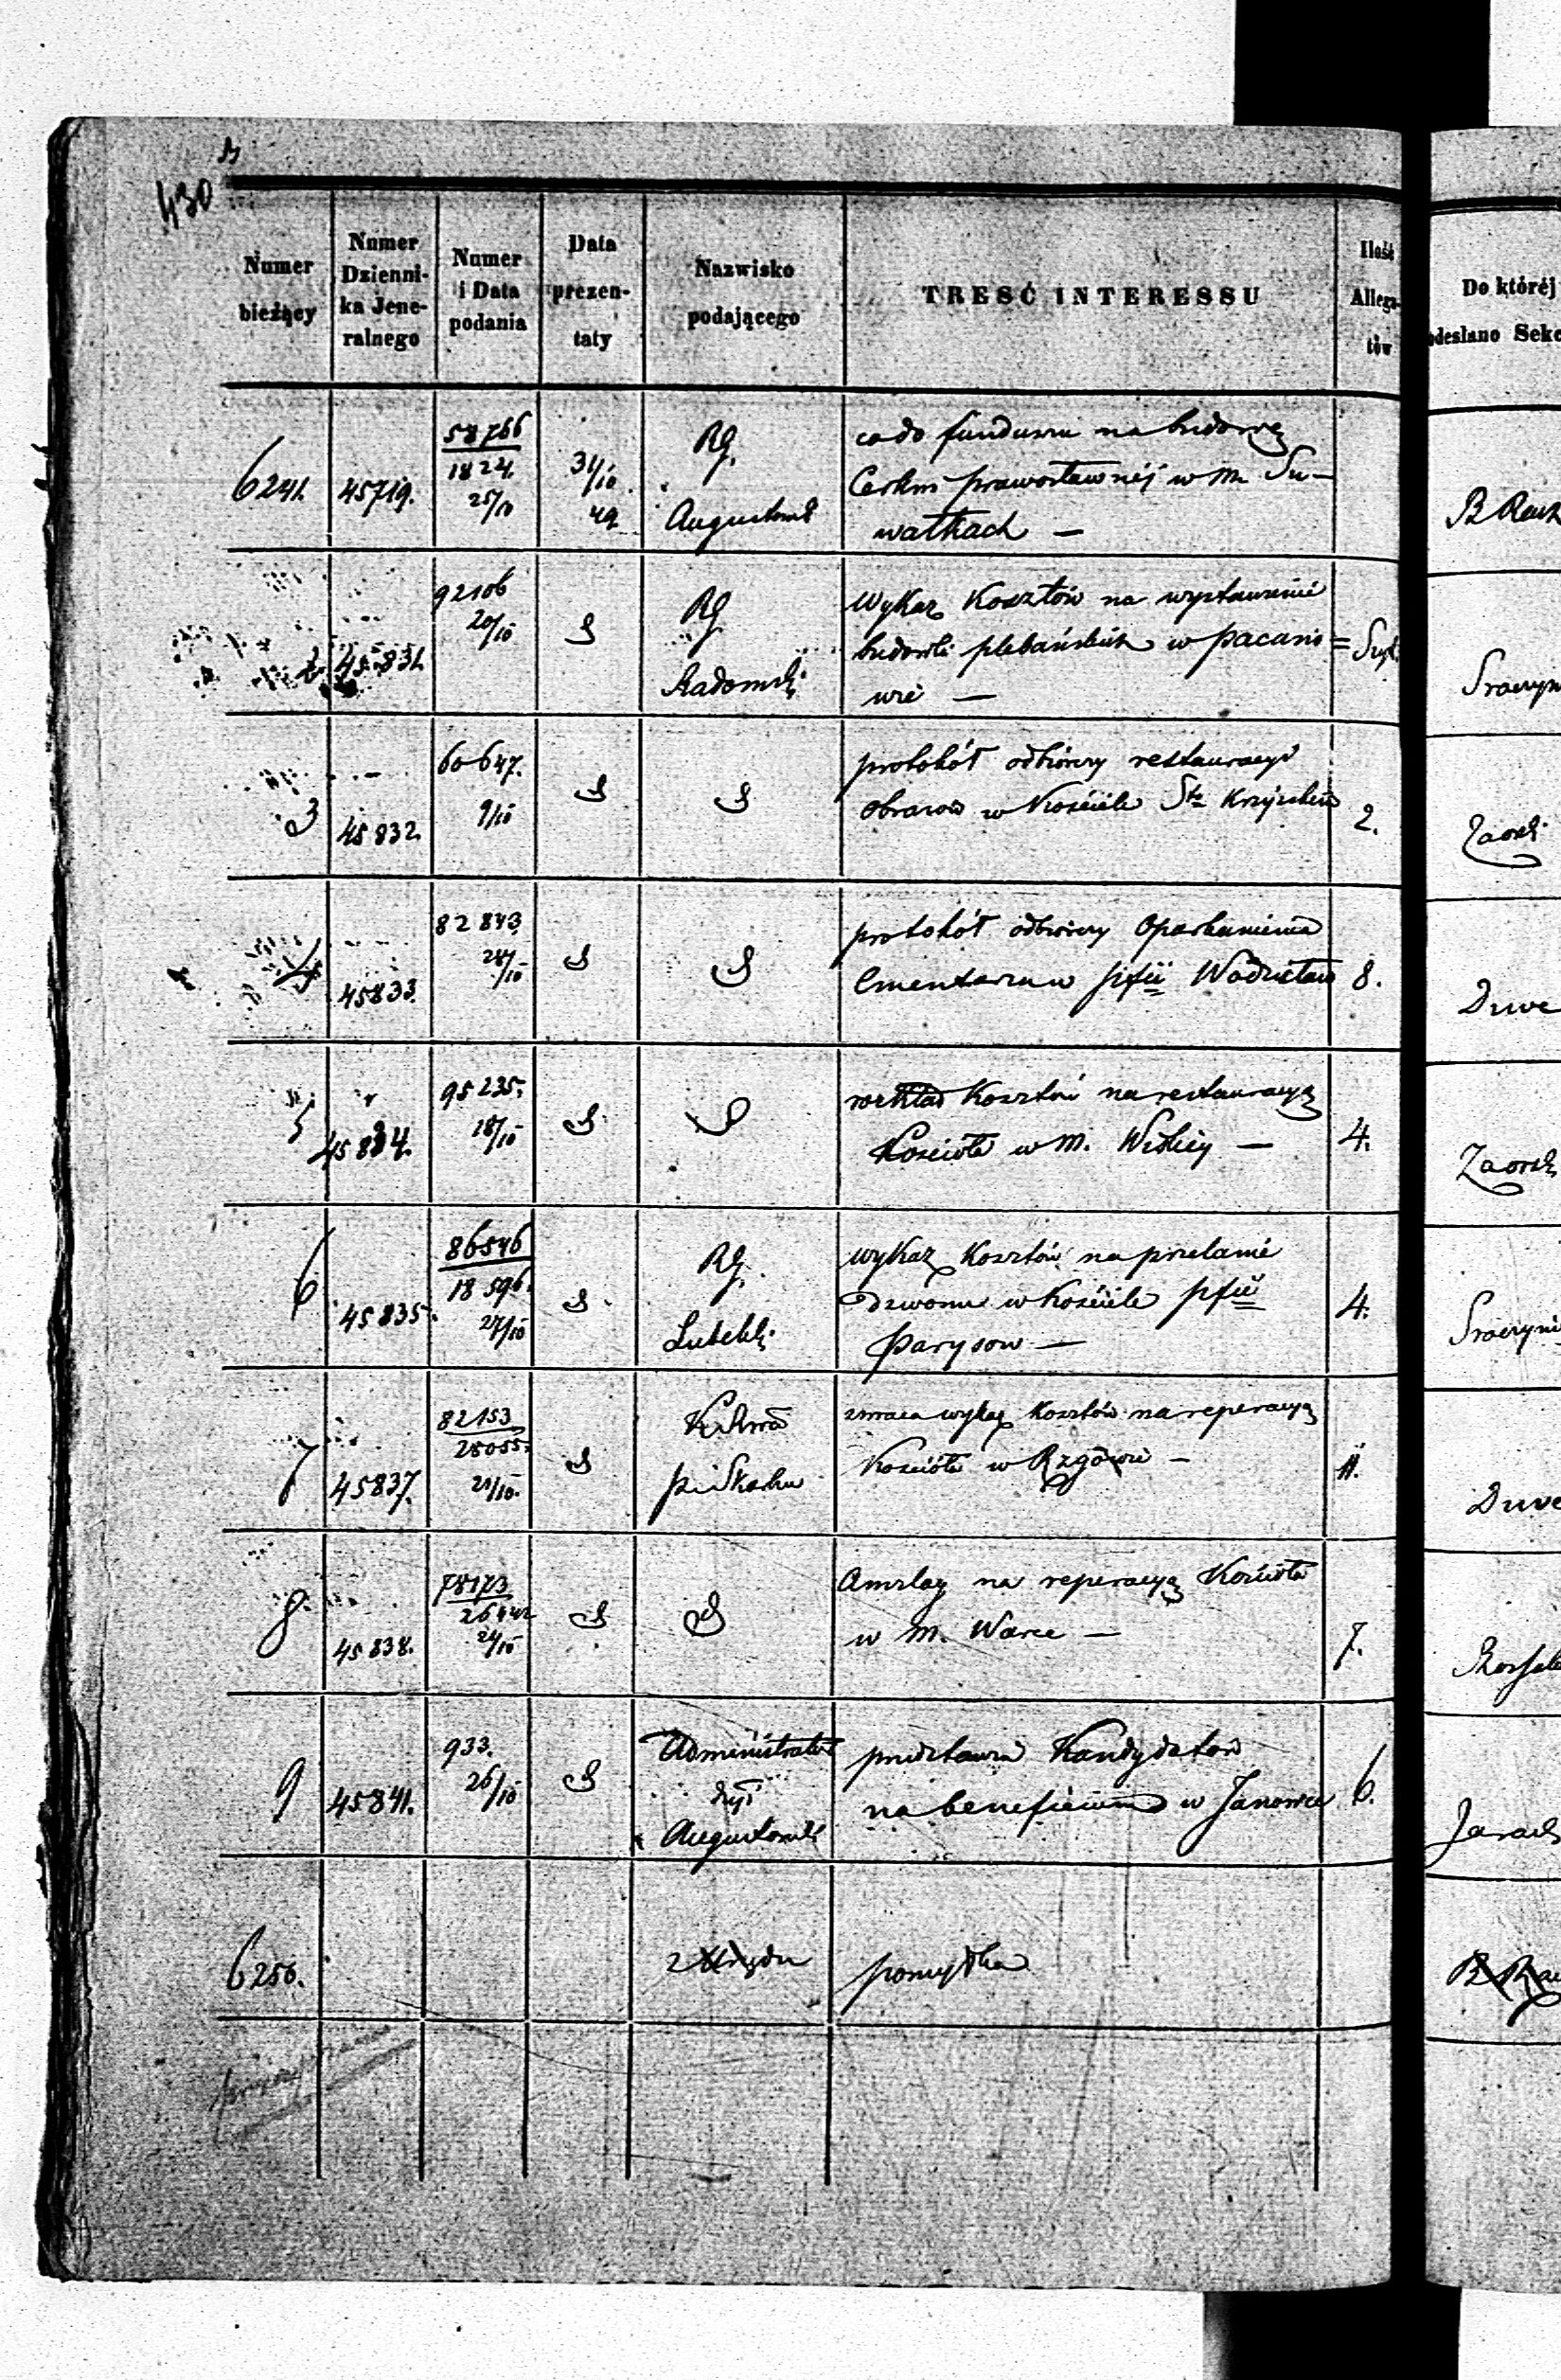 430
Numer bieżący
Numer Dzienni-ka Jene-ralnego
Numer i Data podania
Data prezen-taty
Nazwisko podającego
TRESĆ INTERESSU
Ilość Allega-tów
Do któréj
odesłano Sekc
6241. 45719. 58766 1824. 25/10 31/10 49 RG. Augustowski
co do funduszu na budowę
Cerkwi prawosławnéj w m. Su-
wałkach —
2 45831. 92106 20/10 RG Radomski
Wykaz Kosztów na wystawienie
budowli plebańskich w Pacano=
wie —
3 45832. 60647. 9/10
protokół odbiorczy restauracyi
obrazów w Kościele Sto Krzyzkim
2.
Zaorsk
4 45833. 82843. 28/10
protokół odbiorczy Oparkanienia
Cmentarza w pfii Wodzisław
8.
5 45834. 95235. 18/10
rozkład Kosztów na restauracyą
Kościoła w M. Wiślicy —
4.
Zaorsk
6 45835. 86546 18596. 27/10 RG. Lubelski
wykaz Kosztów na przelanie
dzwonu w Kościele pfii
Parysow —
4.
7 45837. 82153 25055. 21/10
zwraca wykaz Kosztów na reperacyą
Kościoła w Rzgowie —
11.
8 45838. 78173 24/10
Anszlag na reperacyą Kościoła
w M. Warce —
7.
9 45841. 933. 26/10 Administrator dyi Augustowski
przedstawia Kandydatów
na beneficium w Janowce
6.
6250.
pomyłka